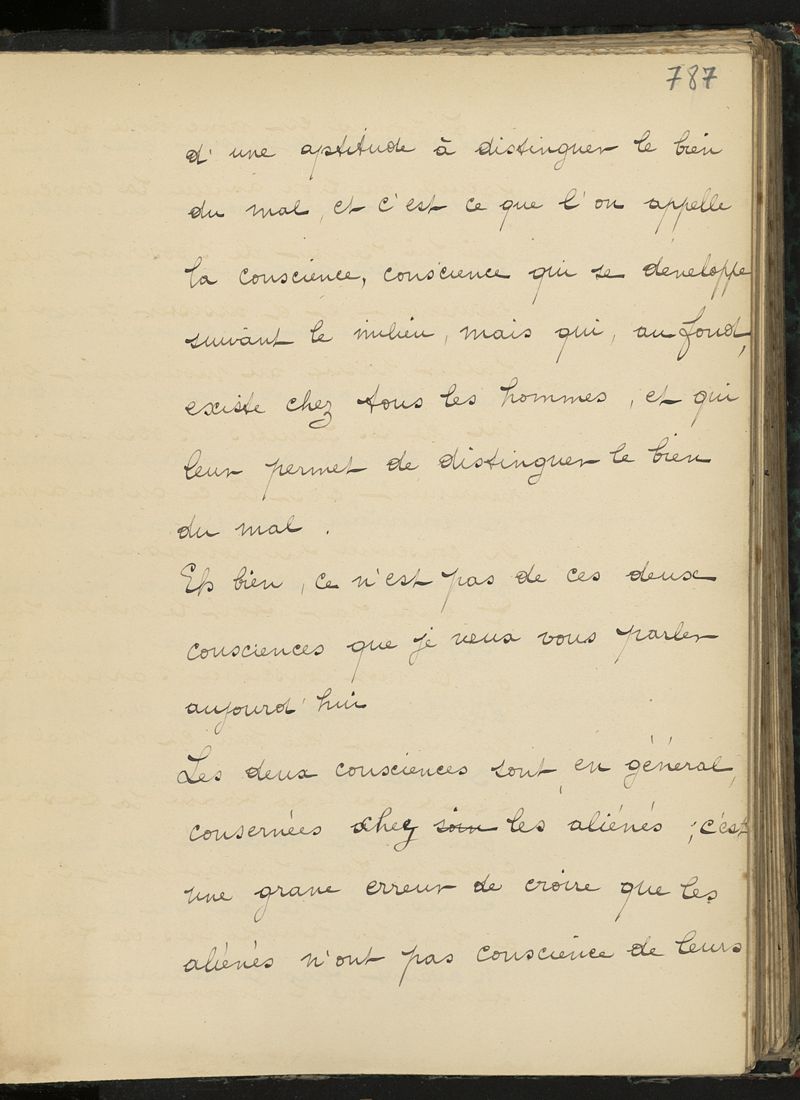 787
d'une aptitude à distinguer le bien
du mal, et c'est ce que l'on appelle
la conscience, conscience qui se développe
suivant le milieu, mais qui, au fond,
existe chez tous les hommes, et qui
leur permet de distinguer le bien
du mal.
Eh bien, ce n'est pas de ces deux
consciences que je veux vous parler
aujourd'hui
Les deux consciences sont, en général,
conservées chez soin les aliénés ; c'est
une grave erreur de croire que les
aliénés n'ont pas conscience de leurs